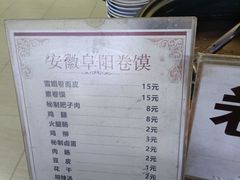 安徽阜阳卷馍
雪媚卷面皮 15元
素卷馍 15元
秘制肥子肉 8元
鸡腿 8元
火腿肠 2元
鸡柳 3元
秘制卤蛋 2元
肉肠 2元
豆皮 2元
花干 2元